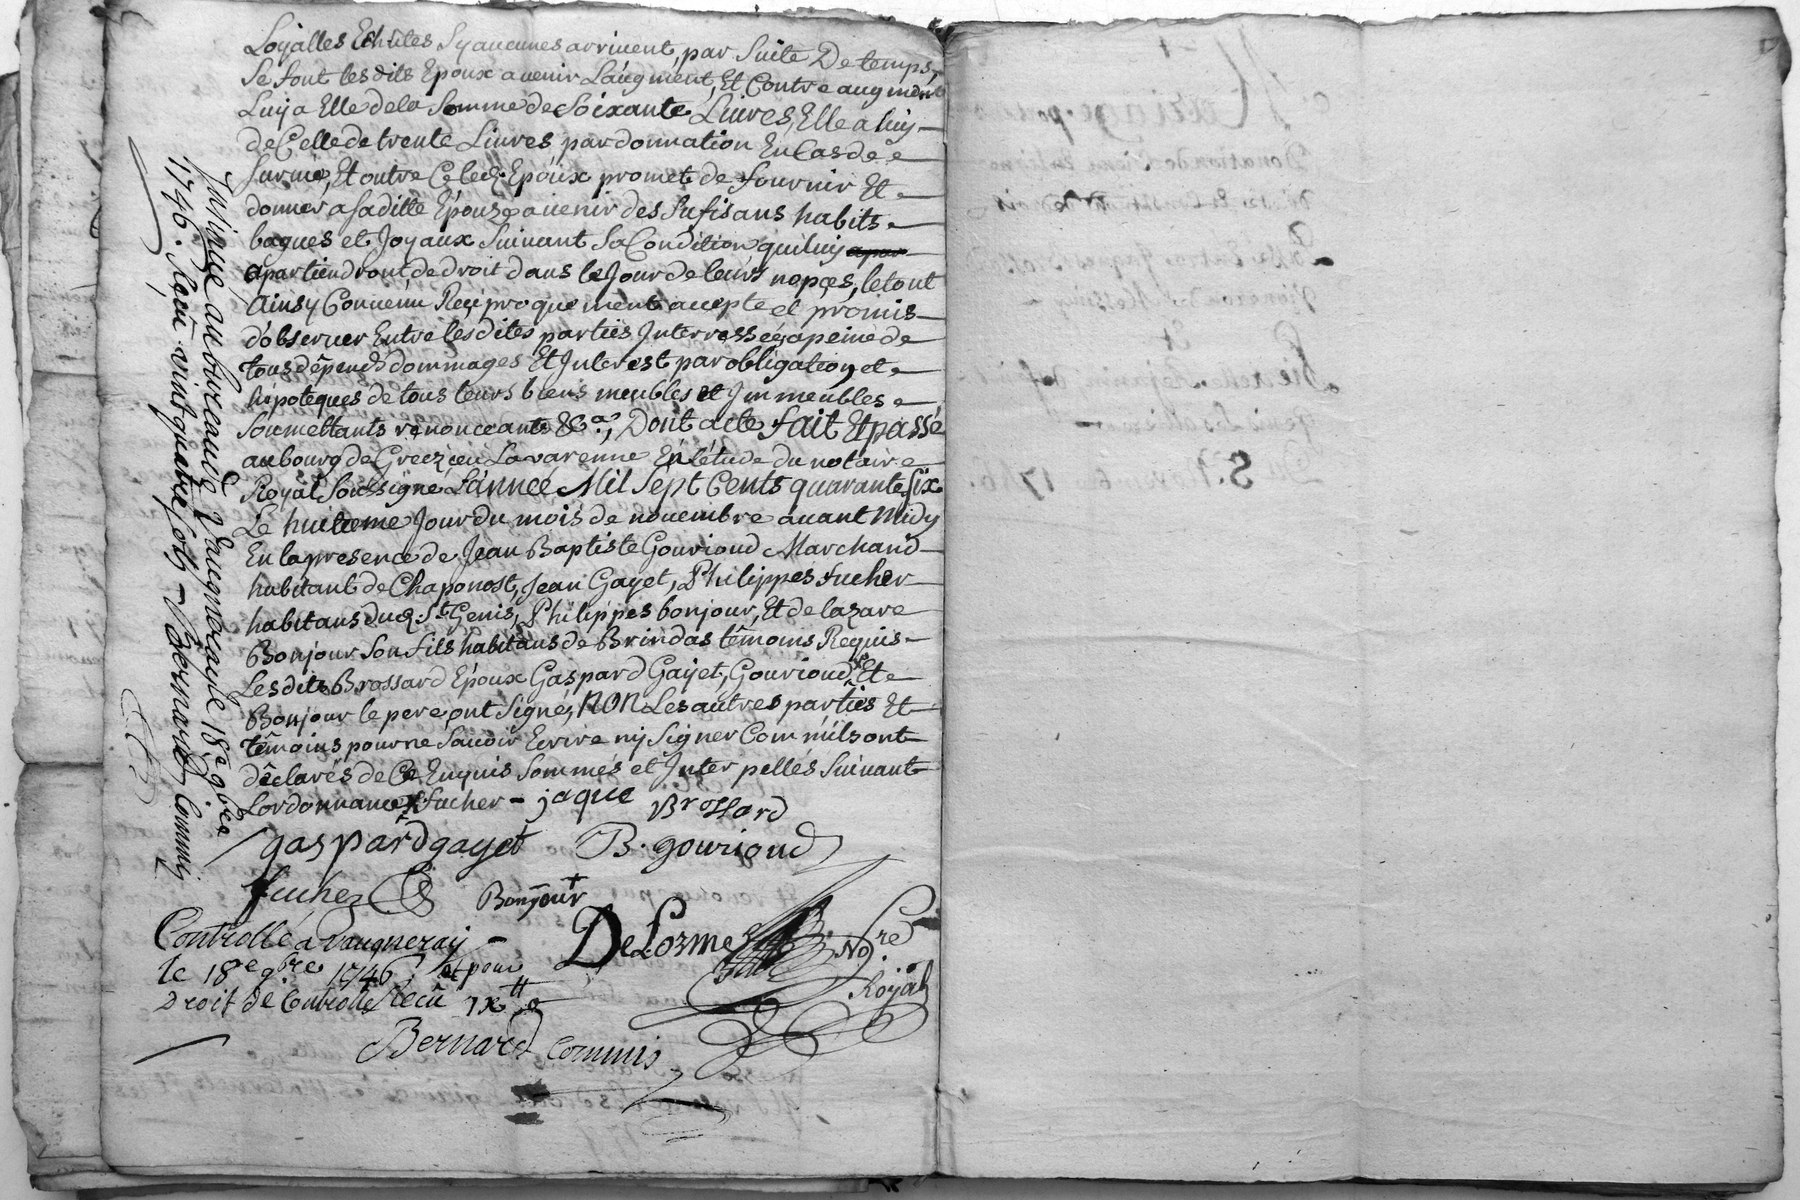 Loyalles Echûtes Sy aucunes arrivent, par Suite De temps,
Se font lesdits Epoux avenir Laugment, Et Contre augment
Luy a Elle de la Somme de Soixante Livres, Elle a luy
de Celle de trente Livres par donnation En Cas de
Survie, Et outre Ce led. Epoux promet de fournir Et
donner a Saditte Epouze avenir des Sufisans habits
bagues et Joyaux Suivant Sa Condition qui luy apar
apartiendront de droit dans le Jour de leurs nopces, le tout
Ainsy Convenu Reciproquement accepté et promis
d'observer Entre lesdites parties Interressées a peine de
tous dépends dommages Et Interest par obligation et
hipoteques de tous leurs biens meubles et Immeubles
Soumettants renonceants &c.a, Dont acte fait Et passé
au bourg de Grezieu Lavarenne En l'étude du notaire
Royal Soussigné L'année Mil Sept Cents quarante Six
Le huitieme Jour du mois de novembre avant Midy
En la presence de Jean Baptiste Gourioud Marchand
habitant de Chaponost, Jean Gayet, Philippes fucher
habitans dud. St. Genis, Philippes bonjour, Et de lazare
Bonjour Son fils habitans de Brindas têmoins Requis
Lesdits Brossard Epoux Gaspard Gayet, Gourioud, Et
Bonjour le pere ont Signé, NON Les autres parties Et
têmoins pour ne Savoir Ecrire ny Signer Comm'ils ont
dêclarés de Ce Enquis Sommés et Interpellés Suivant
Lordonnance fucher - jaque Brossard
gaspard gayet B. gourioud
fucher Bonjour
DeLorme No.re
Royal
Controllé a Vaugneray
le 18e 9bre 1746 et pour
Droit de Controlle Recu
Bernard Commis
Insinué au bureau de Vaugneray le 18e 9bre
1746. Recu vint quatre Sols - Bernard Commis
Donation
8. Novembre 1746.